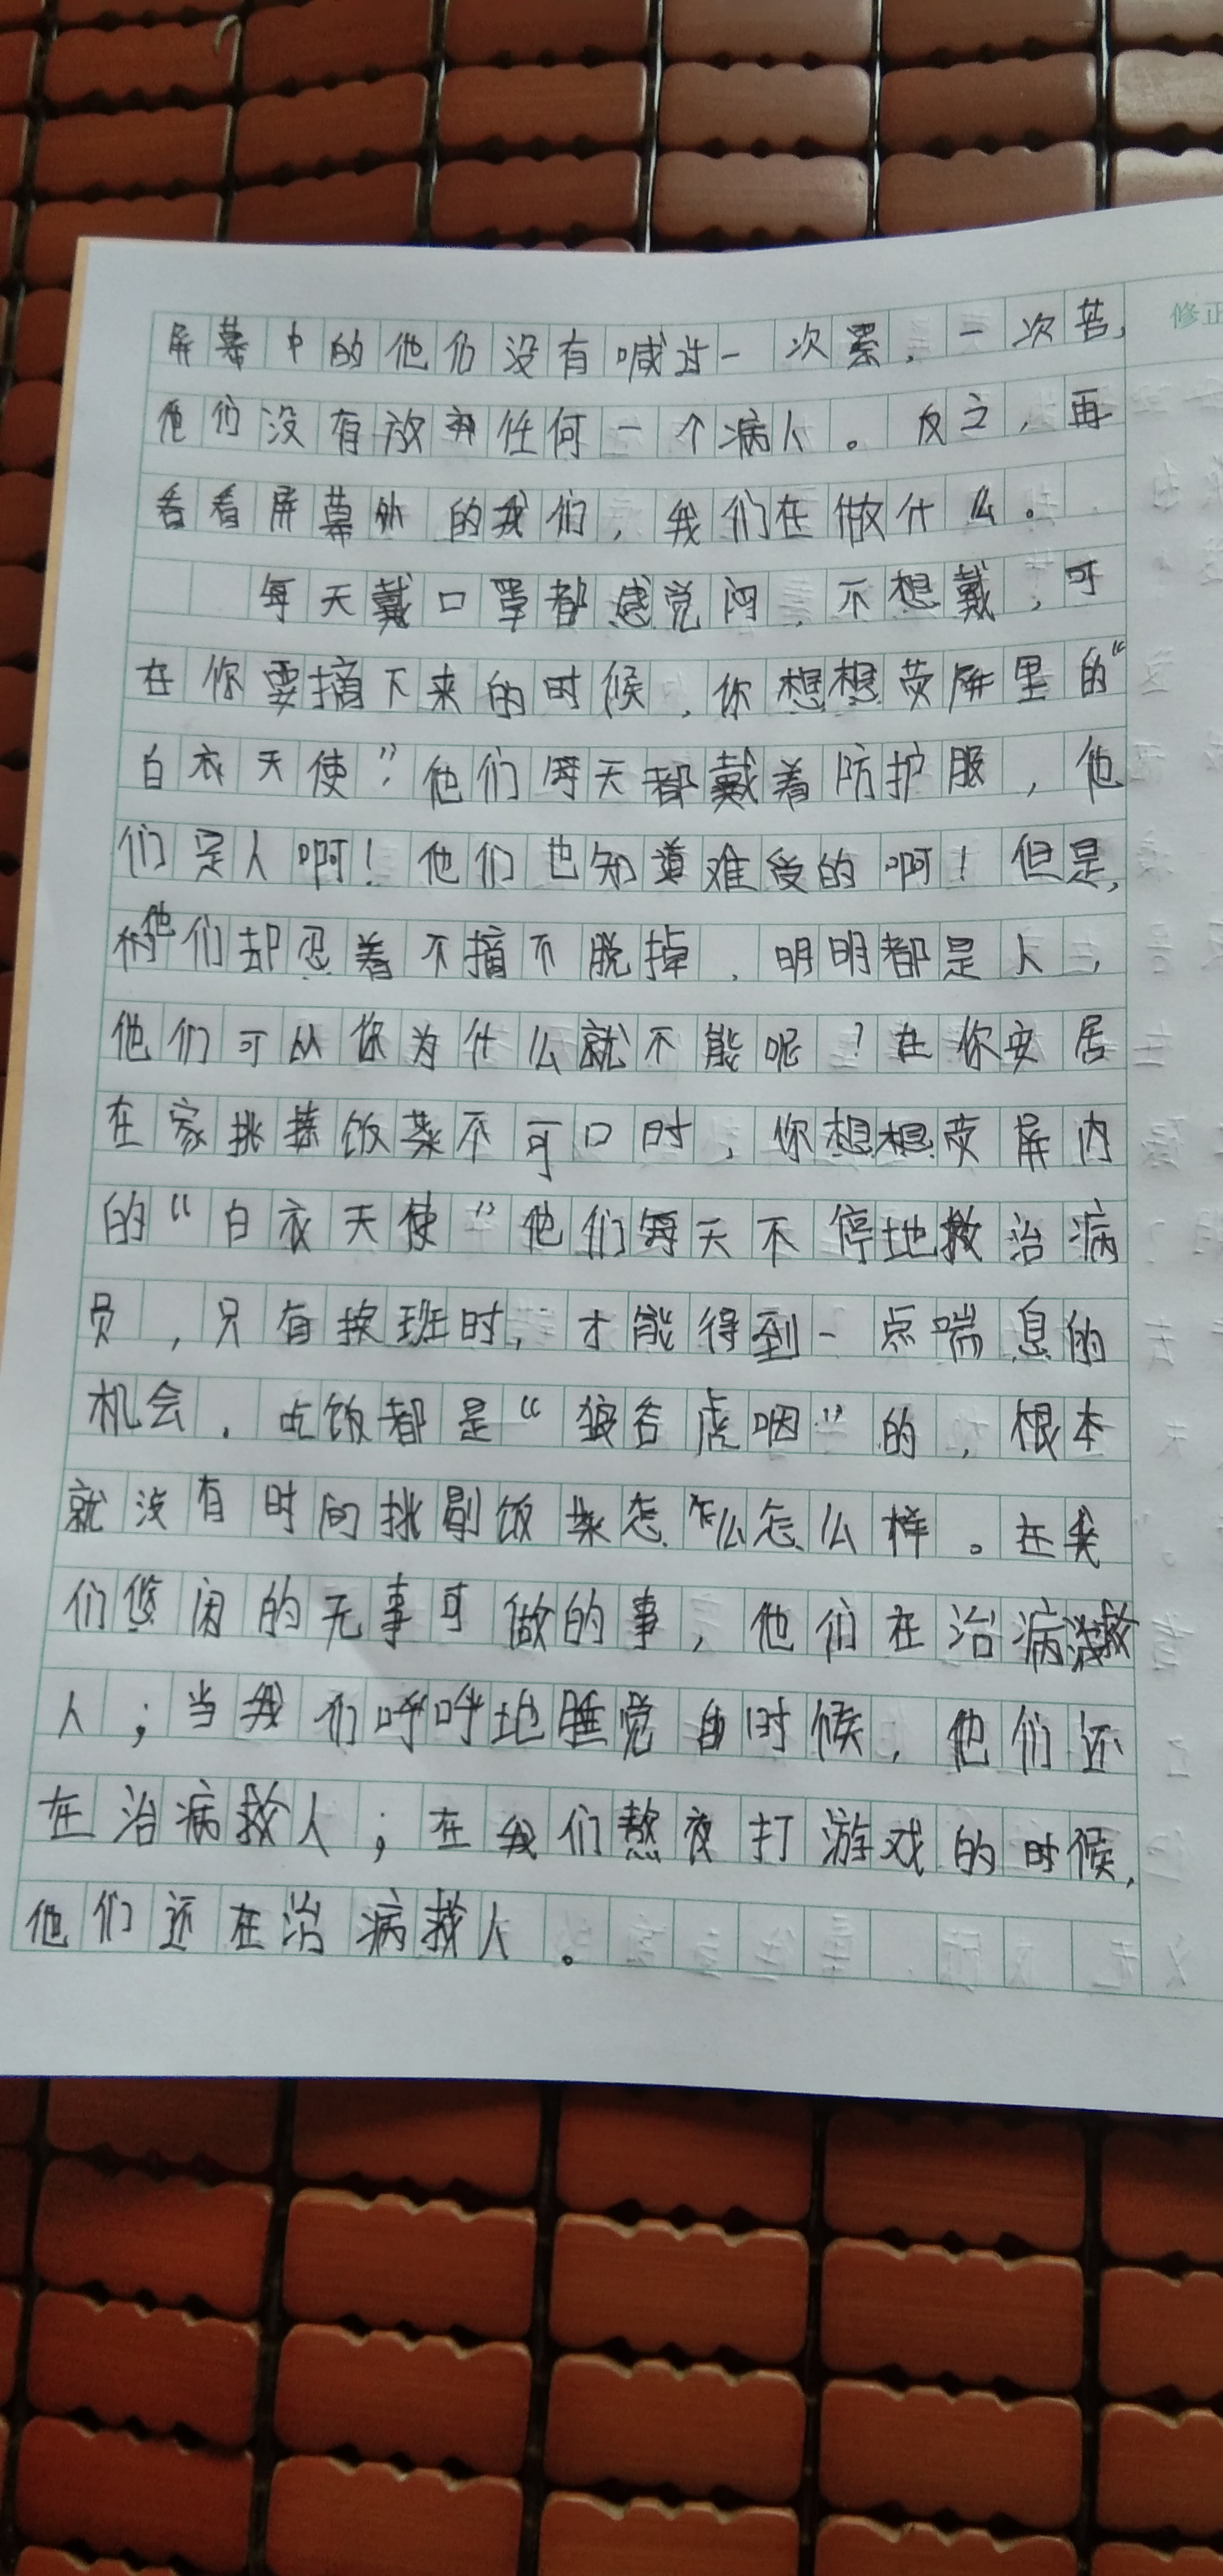 修正
屏幕中的他们没有喊过一次累，一次苦，
他们没有放弃任何一个病人。反之，再
看看屏幕外的我们，我们在做什么。
每天戴口罩都感觉闷，不想戴，可
在你要摘下来的时候，你想想荧屏里的“
白衣天使”他们每天都戴着防护服，他
们是人啊！他们也知道难受的啊！但是，
他们却忍着不摘不脱掉，明明都是人，
他们可以你为什么就不能呢？在你安居
在家挑拣饭菜不可口时，你想想荧屏内
的“白衣天使”他们每天不停地救治病
员，只有换班时，才能得到一点喘息的
机会，吃饭都是“狼吞虎咽”的，根本
就没有时间挑剔饭菜怎么怎么样。在我
们悠闲的无事可做的事，他们在治病救
人；当我们呼呼地睡觉的时候，他们还
在治病救人；在我们熬夜打游戏的时候，
他们还在治病救人。